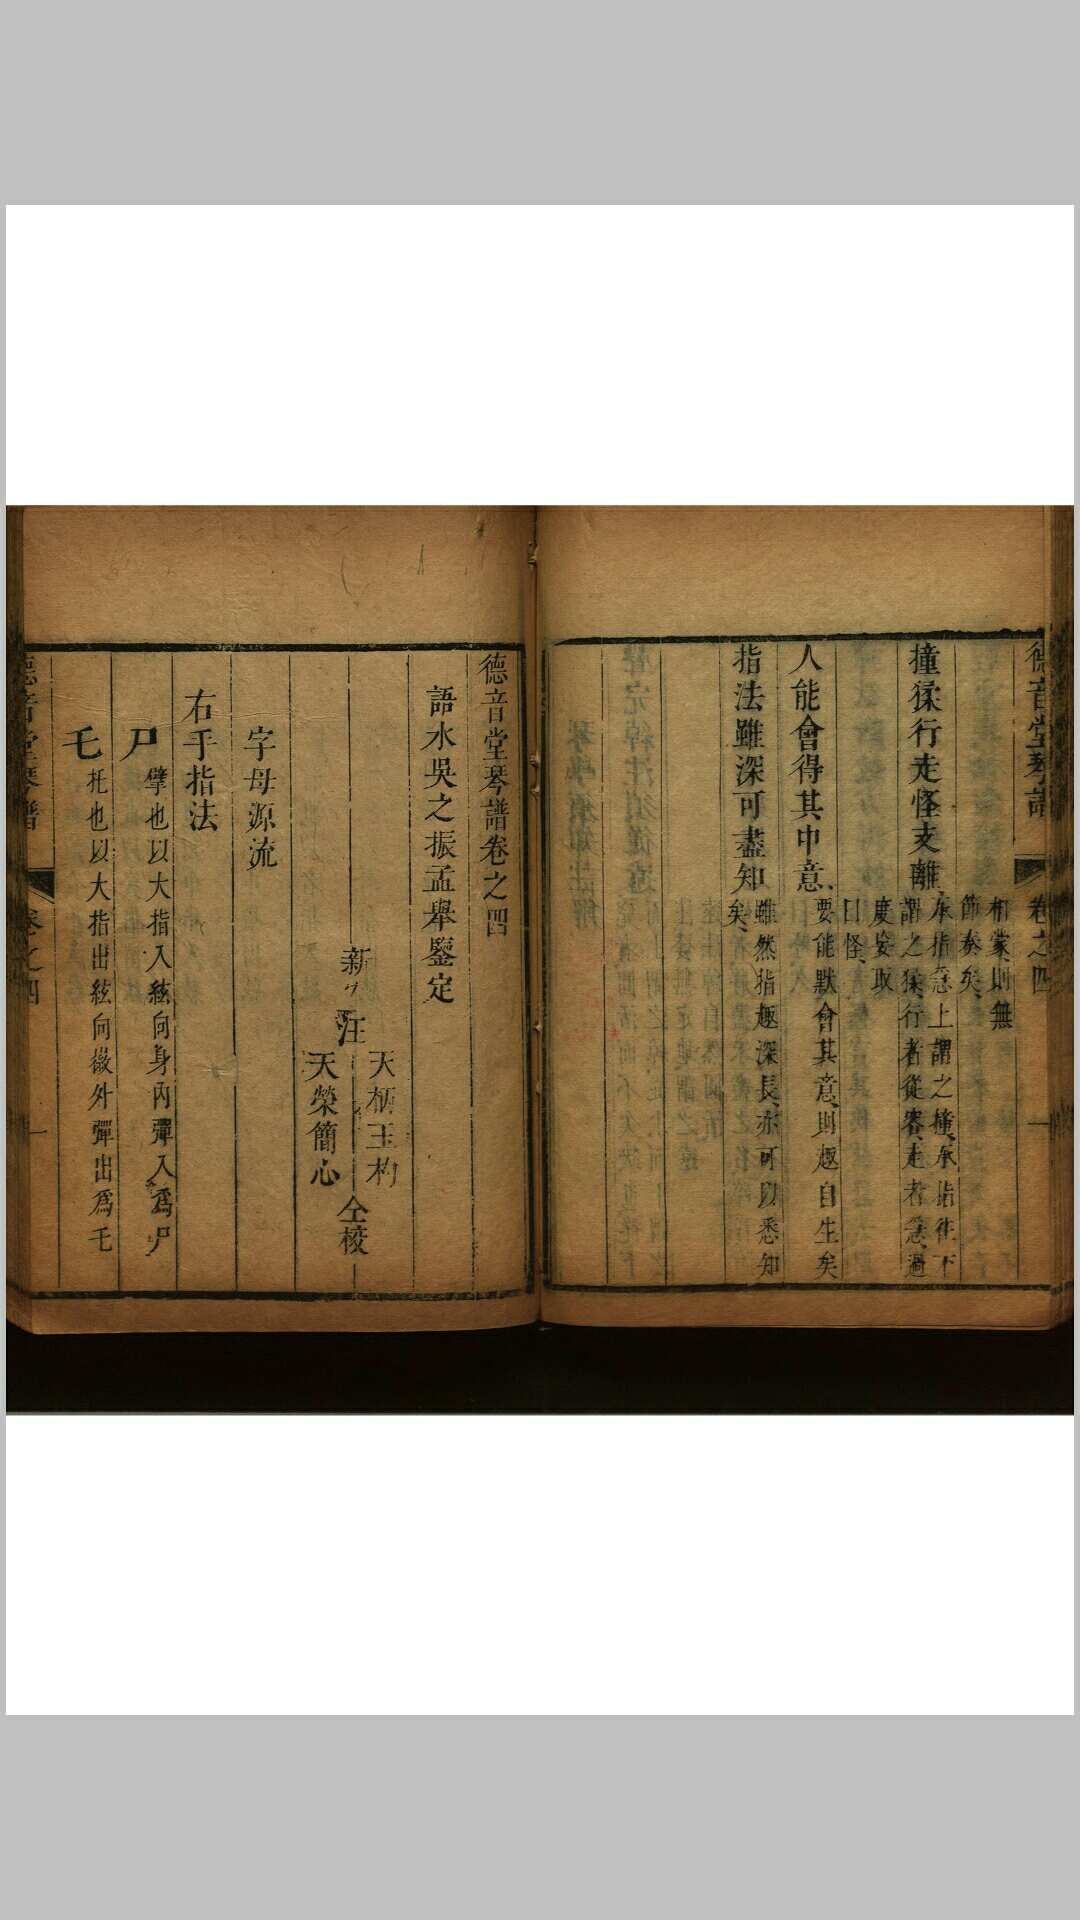 德音堂琴譜
卷之四
一
相蒙則無
節奏矣
撞猱行走怪支離
承指急上謂之撞承指往下
謂之猱行者從容走者急過
度妄取
曰怪
人能會得其中意
要能默會其意則趣自生矣
指法雖深可盡知
雖然指趣深長亦可以悉知
矣
德音堂琴譜卷之四
語水吳之振孟舉鑒定
新安汪
天柄玉杓
天榮簡心
仝校
字母源流
右手指法
尸
擘也以大指入絃向身內彈入爲尸
乇
托也以大指出絃向徽外彈出爲乇
德音堂琴譜
卷之四
一